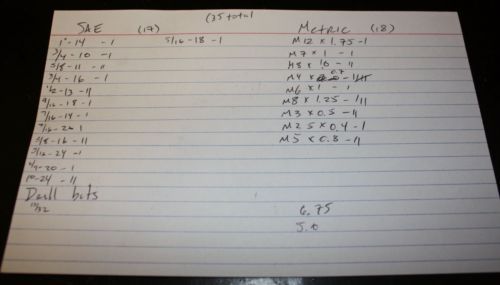 (35 total
SAE (17) Metric (18)
1"-14 -1 5/16-18-1 M12 x 1.75-1
3/4-10 -1 M7 x 1 -1
5/8-11 -11 M8 x 10 -11
3/4-16 -1 M4 x 0.7
1/2-13-11 M6 x 1 -1
-18-1 M8 x 1.25-111
7/16-14-1 M3 x 0.5-11
M2 5 x 0.4-1
-16-11 M5 x 0.8-11
5/16-24-1
-20-1
10-24-11
Drill bits
13/32 6.75
5.0